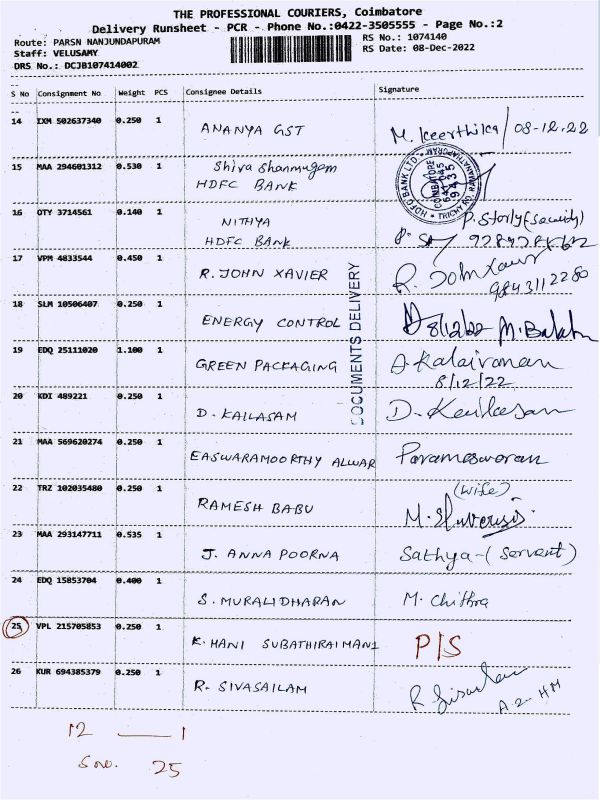 THE PROFESSIONAL COURIERS, Coimbatore
Delivery Runsheet - PCR - Phone No.:0422-3505555 - Page No.:2
Route: PARSN NANJUNDAPURAM RS No.: 1074140
Staff: VELUSAMY RS Date: 08-Dec-2022
DRS No.: DCJB107414002
S No Consignment No Weight PCS Consignee Details Signature
14 IXM 502637340 0.250 1 ANANYA GST M. Keerthika / 08-12.22
15 MAA 294601312 0.530 1 Shiva Shanmugam
HDFC BANK
HDFC BANK LTD. TRICHY RD. RAMANATHAPURAM
COIMBATORE
641 045
9435
16 OTY 3714561 0.140 1 NITHYA P. Storly (Security)
HDFC BANK
17 VPM 4833544 0.450 1 R. JOHN XAVIER R. John Xavier
9843112280
18 SLM 10506407 0.250 1 ENERGY CONTROL 8/12/22 M. Balah
DOCUMENTS DELIVERY
19 EDQ 25111020 1.100 1 GREEN PACKAGING A. Kalaivanan
8/12/22
20 KDI 489221 0.250 1 D. KAILASAM D. Kailasam
21 MAA 569620274 0.250 1 EASWARAMOORTHY ALWAR Parameswaran
22 TRZ 102035480 0.250 1 RAMESH BABU (wife)
23 MAA 293147711 0.535 1 J. ANNA POORNA Sathya - (Servant)
24 EDQ 15853704 0.400 1 S. MURALIDHARAN M. Chithra
25 VPL 215705853 0.250 1 K. HANI SUBATHIRAIMANI P/S
26 KUR 694385379 0.250 1 R. SIVASAILAM A-2-HM
12 — 1
Sno. 25